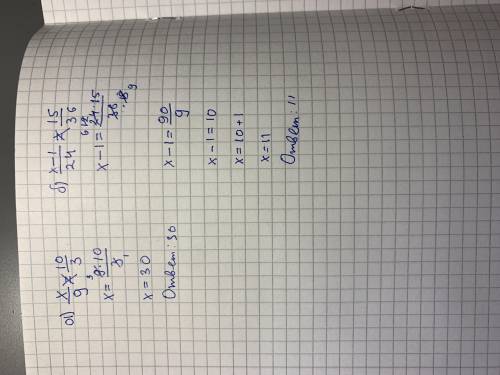 а) x/9 = 10/3
x = 9·10/3
3 1
x = 30
Ответ: 30
б) x-1/24 = 15/36
x-1 = 24·15/36
6 12 18 9
x-1 = 90/9
x-1=10
x=10+1
x=11
Ответ: 11